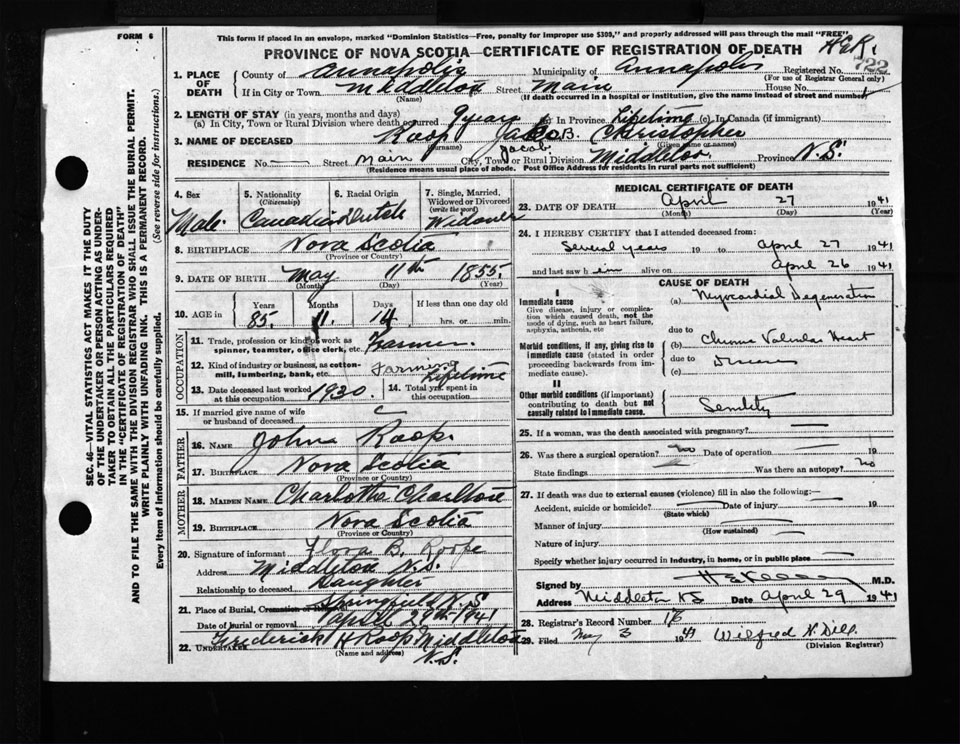 FORM 6
This form if placed in an envelope, marked "Dominion Statistics—Free, penalty for improper use $300," and properly addressed will pass through the mail "FREE"
PROVINCE OF NOVA SCOTIA—CERTIFICATE OF REGISTRATION OF DEATH
722
1. PLACE OF DEATH
County of Annapolis Municipality of Annapolis Registered No.
(For use of Registrar General only)
If in City or Town Middleton Street Main House No.
(Name) (If death occurred in a hospital or institution, give the name instead of street and number)
2. LENGTH OF STAY (in years, months and days)
(a) In City, Town or Rural Division where death occurred 9 years (b) in Province Lifetime (c) In Canada (if immigrant)
3. NAME OF DECEASED Roop Jacob B. Christopher
(Surname) Jacob (Given name or names)
RESIDENCE No. Street Main City, Town or Rural Division Middleton Province N.S.
(Residence means usual place of abode. Post Office Address for residents in rural parts not sufficient)
4. Sex
Male
5. Nationality
(Citizenship)
Canadian
6. Racial Origin
Dutch
7. Single, Married, Widowed or Divorced
(write the word)
Widower
8. BIRTHPLACE Nova Scotia
(Province or Country)
9. DATE OF BIRTH May 11th 1855
(Month) (Day) (Year)
10. AGE in
Years Months Days If less than one day old
85 11 14 hrs. or min.
OCCUPATION
11. Trade, profession or kind of work as spinner, teamster, office clerk, etc. Farmer
12. Kind of industry or business, as cotton-mill, lumbering, bank, etc. Farming
13. Date deceased last worked at this occupation 1930
14. Total yrs. spent in this occupation Lifetime
15. If married give name of wife or husband of deceased
FATHER
16. NAME John Roop
17. BIRTHPLACE Nova Scotia
(Province or Country)
MOTHER
18. MAIDEN NAME Charlotte Charlton
19. BIRTHPLACE Nova Scotia
(Province or Country)
20. Signature of informant Flora B. Roope
Address Middleton N.S.
Relationship to deceased Daughter
21. Place of Burial, Cremation or Removal Springfield N.S.
Date of burial or removal April 29th 1941
22. UNDERTAKER Frederick H Roop Middleton N.S.
(Name and address)
MEDICAL CERTIFICATE OF DEATH
23. DATE OF DEATH April 27 1941
(Month) (Day) (Year)
24. I HEREBY CERTIFY that I attended deceased from:
Several years 19 to April 27 1941
and last saw him alive on April 26 1941
CAUSE OF DEATH
I
Immediate cause
Give disease, injury or complication which caused death, not the mode of dying, such as heart failure, asphyxia, asthenia, etc
(a) Myocardial Degeneration
due to
Morbid conditions, if any, giving rise to immediate cause (stated in order proceeding backwards from immediate cause).
(b) Chronic Valvular Heart
due to Disease
(c)
II
Other morbid conditions (if important) contributing to death but not causally related to immediate cause.
Senility
25. If a woman, was the death associated with pregnancy?
26. Was there a surgical operation? no Date of operation 19
State findings Was there an autopsy? no
27. If death was due to external causes (violence) fill in also the following:—
Accident, suicide or homicide? Date of injury 19
(State which)
Manner of injury
(How sustained)
Nature of injury
Specify whether injury occurred in industry, in home, or in public place
Signed by M.D.
Address Middleton NS Date April 29 1941
28. Registrar's Record Number
29. Filed May 3 1941 Wilfred N. Dill
(Division Registrar)
SEC. 46—VITAL STATISTICS ACT MAKES IT THE DUTY
OF THE UNDERTAKER OR PERSON ACTING AS UNDER-
TAKER TO OBTAIN ALL THE PARTICULARS REQUIRED
IN THE "CERTIFICATE OF REGISTRATION OF DEATH"
AND TO FILE THE SAME WITH THE DIVISION REGISTRAR WHO SHALL ISSUE THE BURIAL PERMIT.
WRITE PLAINLY WITH UNFADING INK. THIS IS A PERMANENT RECORD.
Every item of information should be carefully supplied. (See reverse side for instructions.)